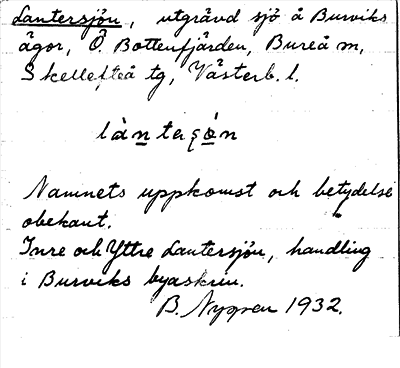 Lantersjön, utgrävd sjö å Burviks
ägor, Ö. Bottenfjärden, Bureå m,
Skellefteå tg, Västerb. l.
làntaʂòn
Namnets uppkomst och betydelse
obekant.
Inre och Yttre Lantersjön, handling
i Burviks byaskrin.
B. Nygren 1932.